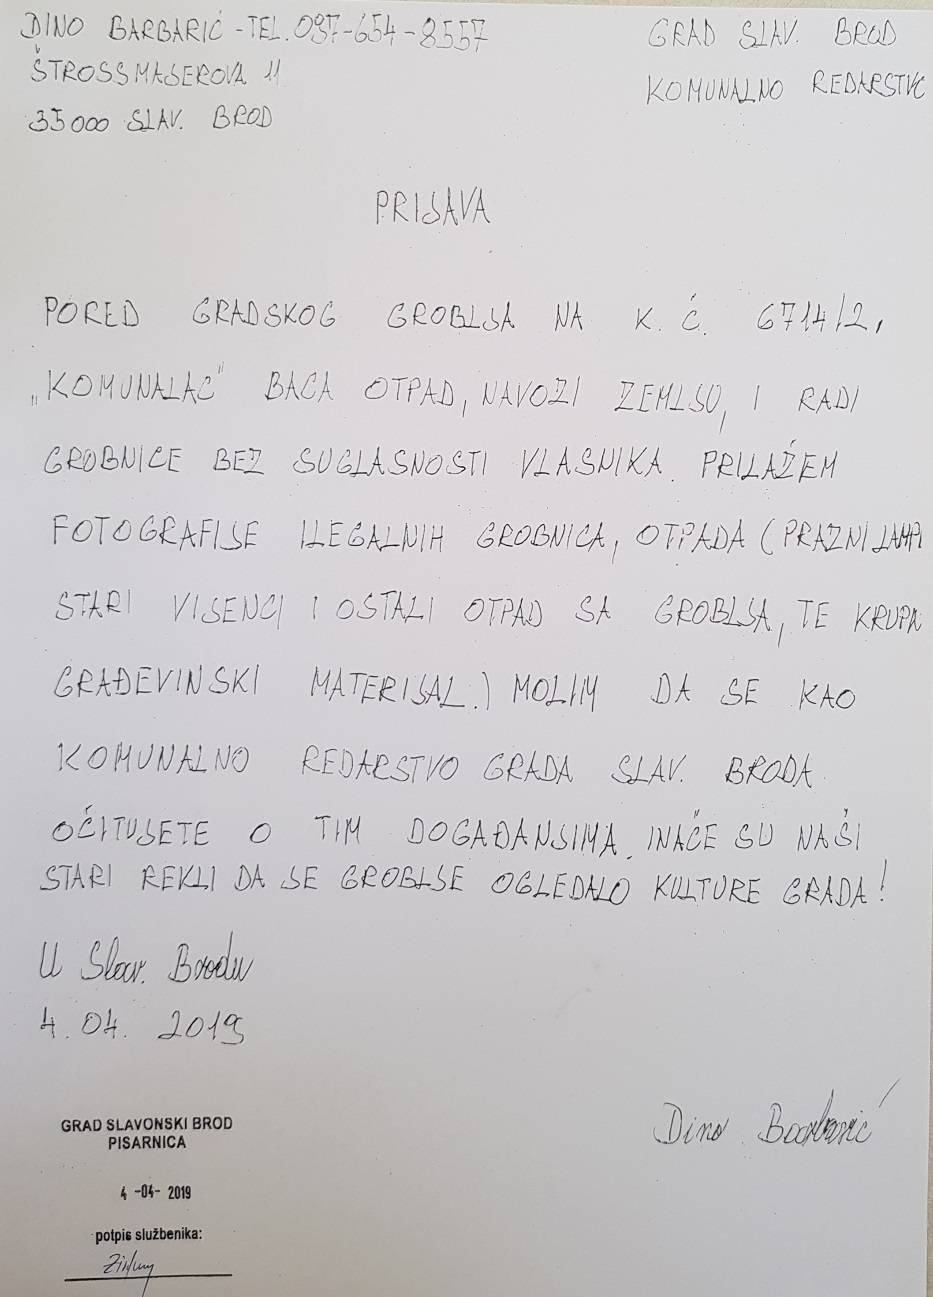 DINO BARBARIĆ - TEL. 097-654-8557
ŠTROSSMAJEROVA 11
35000 SLAV. BROD
GRAD SLAV. BROD
KOMUNALNO REDARSTVO
PRIJAVA
PORED GRADSKOG GROBLJA NA K. Č. 6714/2,
„KOMUNALAC" BACA OTPAD, NAVOZI ZEMLJU, I RADI
GROBNICE BEZ SUGLASNOSTI VLASNIKA. PRILAŽEM
FOTOGRAFIJE ILEGALNIH GROBNICA, OTPADA (PRAZNI LAMPI
STARI VIJENCI I OSTALI OTPAD SA GROBLJA, TE KRUPN
GRAĐEVINSKI MATERIJAL.) MOLIM DA SE KAO
KOMUNALNO REDARSTVO GRADA SLAV. BRODA
OČITUJETE O TIM DOGAĐANJIMA. INAČE SU NAŠI
STARI REKLI DA JE GROBLJE OGLEDALO KULTURE GRADA!
U Slav. Brodu
4.04. 2019
Dino Barbarić
GRAD SLAVONSKI BROD
PISARNICA
4 -04- 2019
potpis službenika: